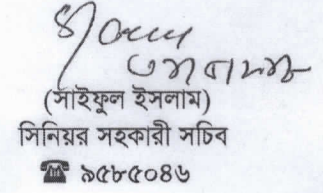 (সাইফুল ইসলাম)
সিনিয়র সহকারী সচিব
☎ ৯৫৮৫০৪৬